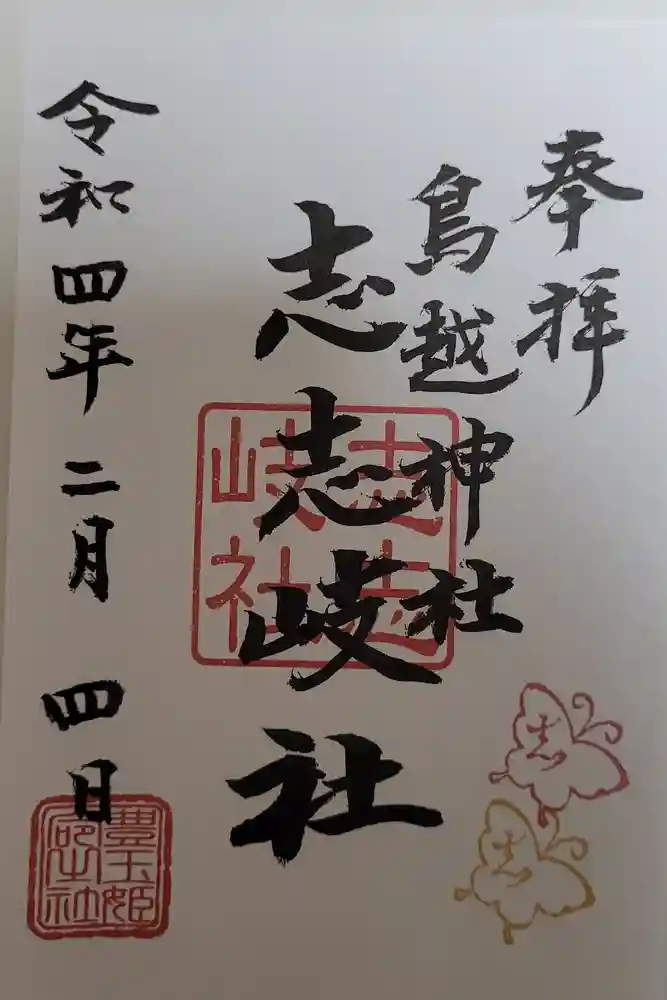 奉拝
鳥越神社
志志岐社
令和四年二月四日
志志
岐社
豊玉姫
社
志
志